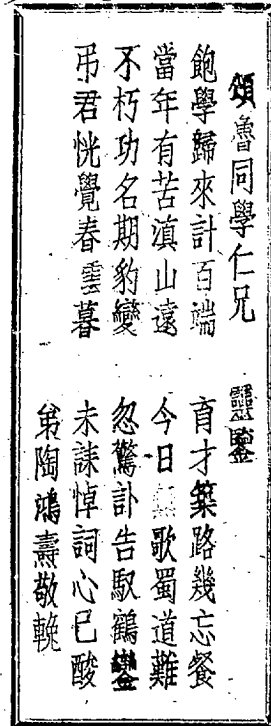 頌魯同學仁兄 靈鑒
飽學歸來計百端 育才築路幾忘餐
當年有苦滇山遠 今日 歌蜀道難
不朽功名期豹變 忽驚訃告馭鶴鑾
弔君恍覺春雲暮 未誄悼詞心已酸
弟陶鴻壽敬輓